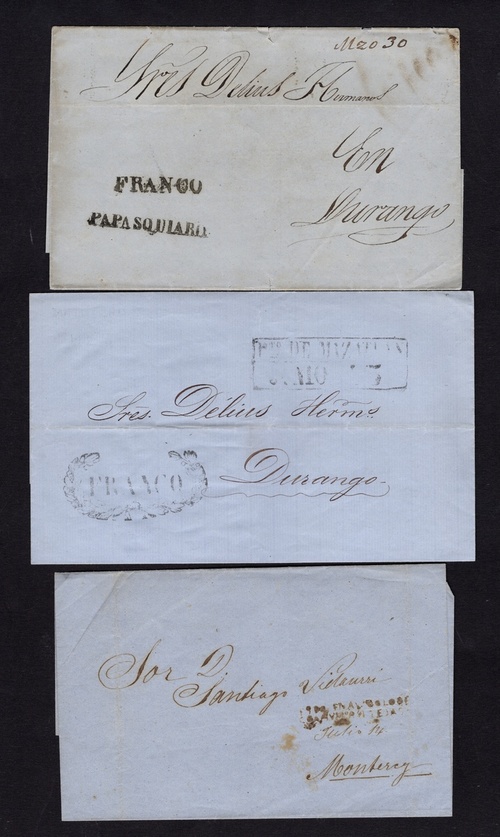 Mzo 30
Sres Delius Hermanos
En
FRANCO
Durango
PAPASQUIARO
FR. DE MAZATLAN
JUNIO
Sres. Delius Hermos.
FRANCO
Durango.
Sor D.
Santiago Vidaurri
Julio 14
Monterey